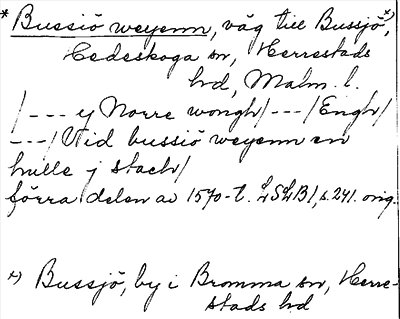 * Bussiö weyenn, väg till Bussjö x),
Cedeskoga sn, Herrestads
hd, Malm. l.
/--- y Norre wongh/---/Engh/
---/Vid bussiö weyenn en
hulle j stach/
förra delen av 1570-t. LSLB1, s. 241. orig.
x) Bussjö, by i Bromma sn, Herre-
stads hd